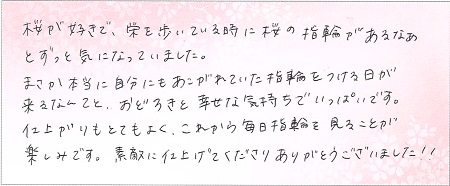 桜が好きで、栄を歩いている時に桜の指輪があるなあ
とずっと気になっていました。
まさか本当に自分にもあこがれていた指輪をつける日が
来るなんてと、おどろきと幸せな気持ちでいっぱいです。
仕上がりもとてもよく、これから毎日指輪を見ることが
楽しみです。素敵に仕上げてくださりありがとうございました!!